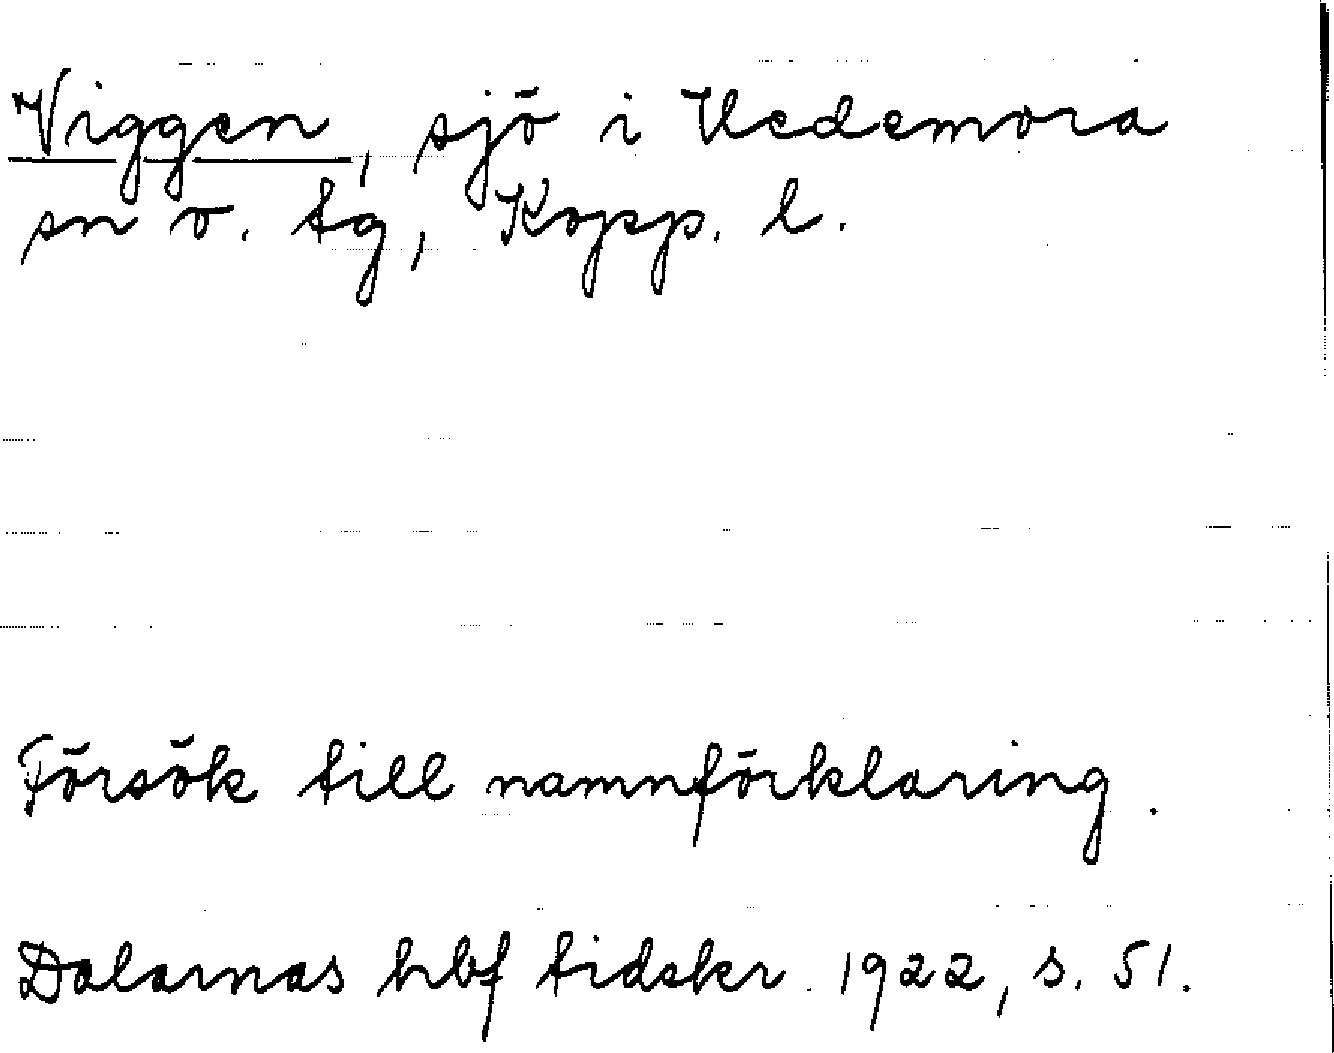 Viggen, sjö i Hedemora
sn o. tg, Kopp. l.
Försök till namnförklaring.
Dalarnas hbf tidskr. 1922, s. 51.